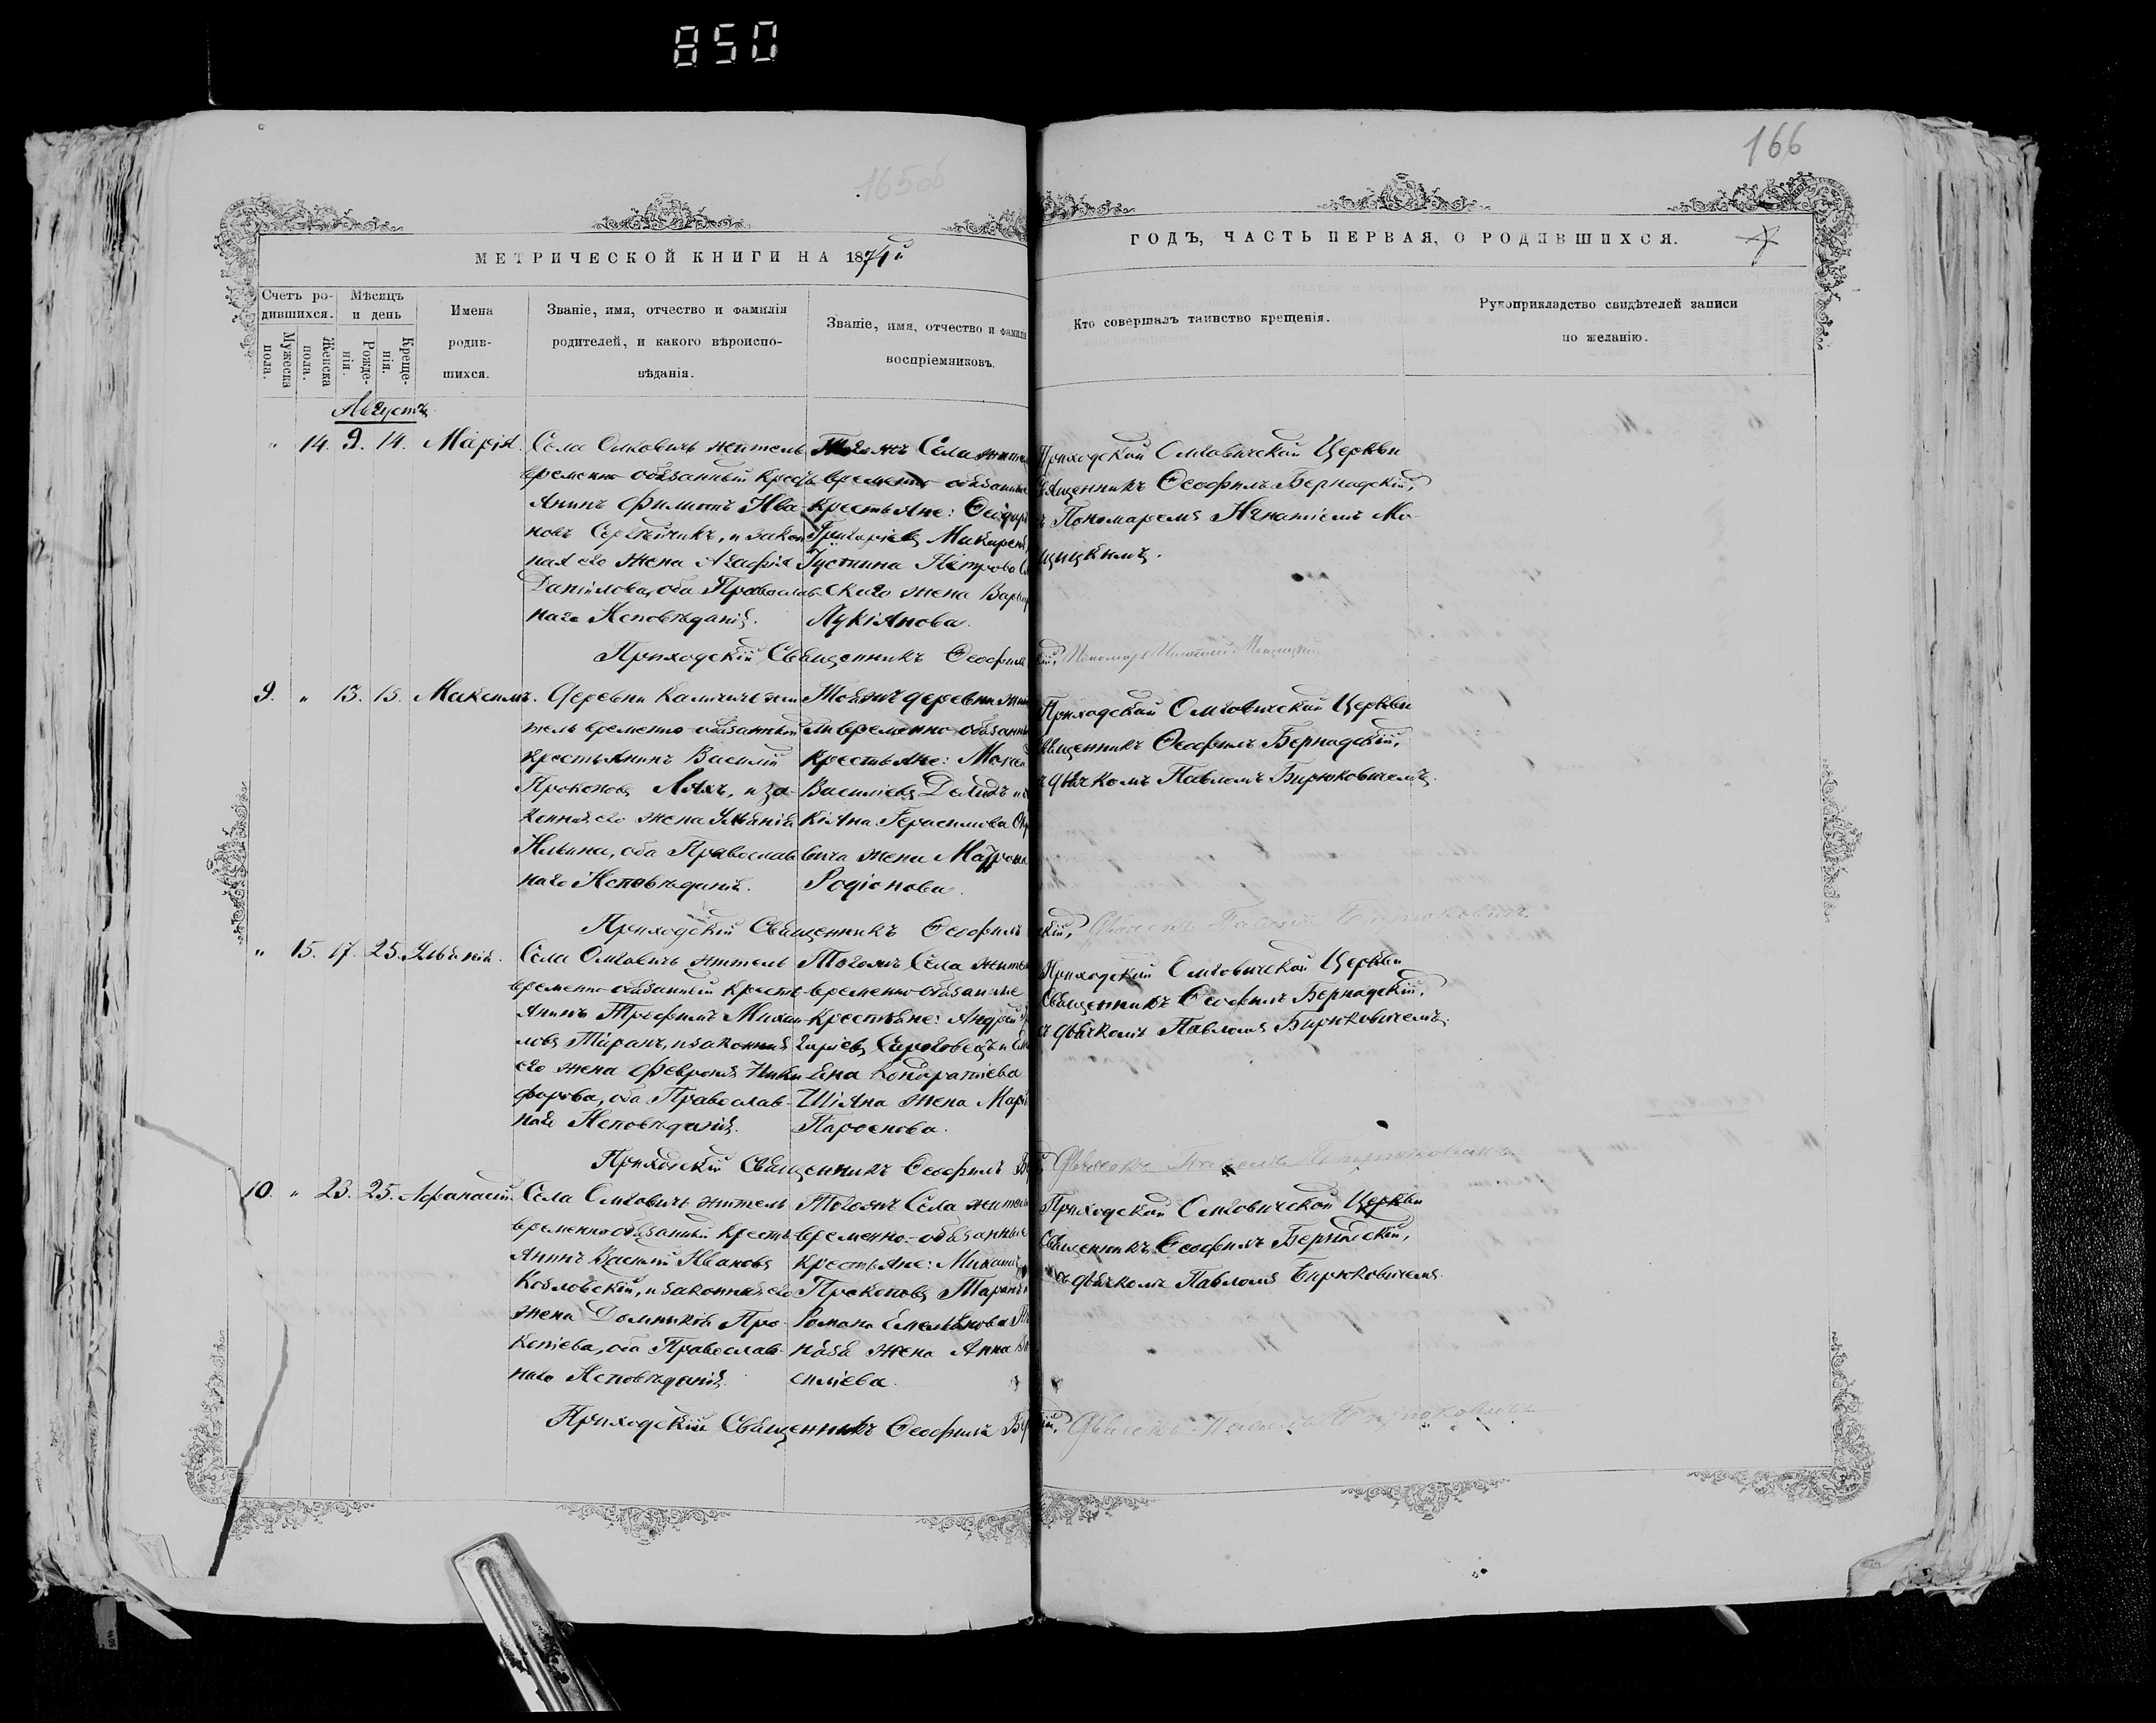 850
165об
166
МЕТРИЧЕСКОЙ КНИГИ НА 1871й
ГОДЪ, ЧАСТЬ ПЕРВАЯ, О РОДИВШИХСЯ.
Счетъ ро-
дившихся.
Мужеска
пола.
Женска
пола.
Мѣсяцъ
и день
Рожде-
нія.
Креще-
нія.
Имена
родив-
шихся.
Званіе, имя, отчество и фамилія
родителей, и какого вѣроиспо-
вѣданія.
Званіе, имя, отчество и фамилія
воспріемниковъ.
Кто совершалъ таинство крещенія.
Рукоприкладство свидѣтелей записи
по желанію.
Августъ
" 14. 9. 14. Марія.
Села Омговичъ житель
временно обязанный кресть
янинъ Филиппъ Ива-
новъ, и закон
ная его жена Агафія
Даніилова, оба Православ-
наго Исповѣданія.
Тогожъ Села жите
временно обязанные
крестьяне: Ѳеодоръ
Григоріевъ Макарен
Іустина Петрова
скаго жена Варвар
Лукіянова.
Приходской Омговичской Церкви
Священникъ Ѳеофилъ Бернадскій,
Пономаремъ Игнатіемъ Мо-
щицкимъ.
Приходскій Священникъ Ѳеофил
кій, Пономарь Игнатій Мощицкій
9. " 13. 15. Максимъ.
Деревни Каличичъ жи
тель временно обязанный
крестьянинъ Василій
Прокоповъ Ляхъ, и за-
конная его жена Ульянія
Ильина, оба Православ
наго Исповѣданія.
Тойжъ деревни жи
ли временно обязанн
крестьяне: Моисей
Василіевъ Демидъ и
кіяна Герасимова
вича жена Матрона
Родіонова.
Приходской Омговичской Церкви
Священникъ Ѳеофилъ Бернадскій,
съ дьячкомъ Павломъ Бирюковичемъ.
Приходскій Священникъ Ѳеофилъ
кій, Дьячекъ Павелъ Бирюковичъ
" 15. 17. 25. Ульянія.
Села Омговичъ житель
временно обязанный кресть
янинъ Трофимъ Михаи
ловъ Таранъ, и законная
его жена Февронія Ники
форова, оба Православ-
наго Исповѣданія.
Тогожъ Села жите
временно обязанные
крестьяне: Андрей
горіевъ Сыроговецъ и
яна Кондратіева
Шіяна жена Мар
Парѳенова.
Приходской Омговичской Церкви
Священникъ Ѳеофилъ Бернадскій,
съ дьячкомъ Павломъ Бирюковичемъ.
Приходскій Священникъ Ѳеофилъ Бе
Дьячекъ Павелъ Бирюковичъ
10. " 23. 25. Аѳанасій.
Села Омговичъ житель
временно обязанный кресть
янинъ Василій Ивановъ
Козловскій, и законная его
жена Домникія Про-
копіева, оба Православ-
наго Исповѣданія.
Тогожъ Села жители
временно-обязанные
крестьяне: Михаилъ
Прокоповъ Таранъ и
Романа Емельянова
жена Анна Ва
силіева.
Приходской Омговичской Церкви
Священникъ Ѳеофилъ Бернадскій,
съ дьячкомъ Павломъ Бирюковичемъ.
Приходскій Священникъ Ѳеофилъ Бер
ій, Дьячекъ Павелъ Бирюковичъ